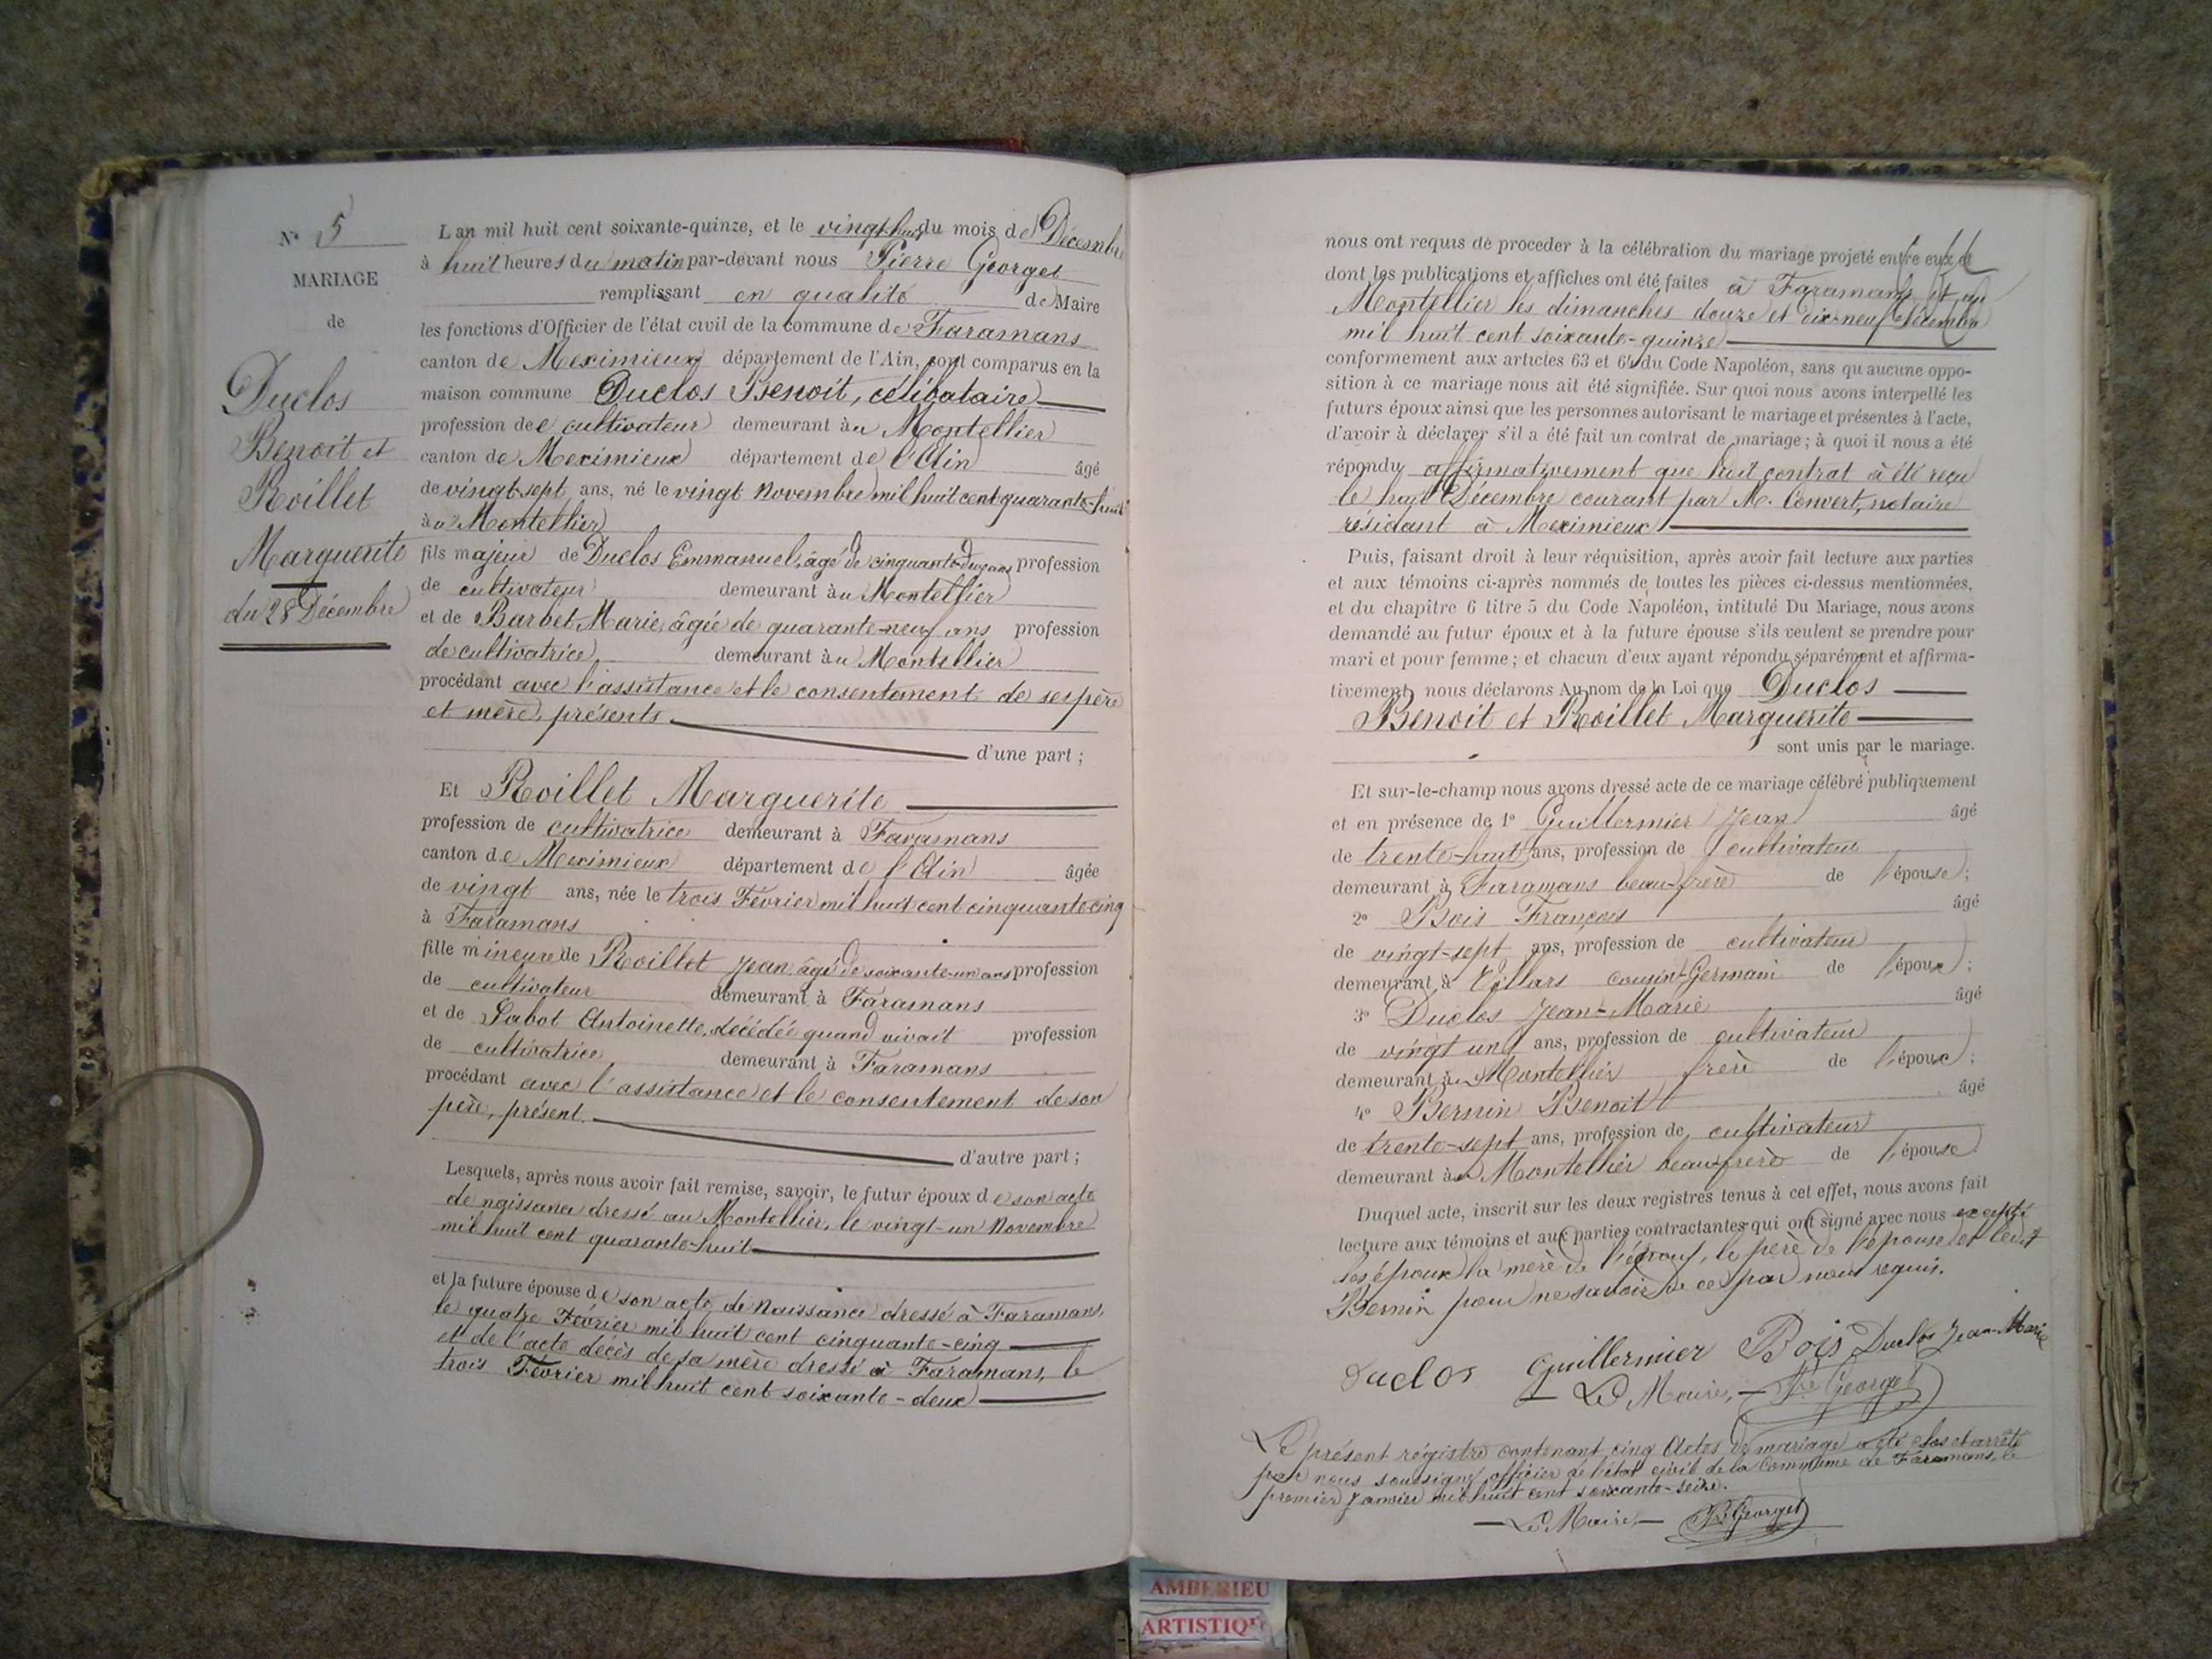 N° 5
MARIAGE
de
Duclos
Benoit et
Roillet
Marguerite
du 28 Décembre
L'an mil huit cent soixante-quinze, et le vingt-huit du mois de Décembre
à huit heures du matin par-devant nous Pierre Georget
remplissant en qualité de Maire
les fonctions d'Officier de l'état civil de la commune de Faramans
canton de Meximieux département de l'Ain, sont comparus en la
maison commune Duclos Benoit, célibataire
profession de cultivateur demeurant au Montellier
canton de Meximieux département de l'Ain âgé
de vingt-sept ans, né le vingt Novembre mil huit cent quarante-huit
au Montellier
fils majeur de Duclos Emmanuel, âgé de cinquante-deux ans profession
de cultivateur demeurant au Montellier
et de Barbet Marie, âgée de quarante-neuf ans profession
de cultivatrice demeurant au Montellier
procédant avec l'assistance et le consentement de ses père
et mère, présents
d'une part ;
Et Roillet Marguerite
profession de cultivatrice demeurant à Faramans
canton de Meximieux département de l'Ain âgée
de vingt ans, née le trois Février mil huit cent cinquante-cinq
à Faramans
fille mineure de Roillet Jean âgé de soixante-un ans profession
de cultivateur demeurant à Faramans
et de Sabot Antoinette, décédée quand vivait profession
de cultivatrice demeurant à Faramans
procédant avec l'assistance et le consentement de son
père, présent.
d'autre part ;
Lesquels, après nous avoir fait remise, savoir, le futur époux de son acte
de naissance dressé au Montellier, le vingt-un Novembre
mil huit cent quarante-huit
et la future épouse de son acte de naissance dressé à Faramans,
le quatre Février mil huit cent cinquante-cinq
et de l'acte décès de sa mère dressé à Faramans, le
trois Février mil huit cent soixante-deux
nous ont requis de procéder à la célébration du mariage projeté entre eux et
dont les publications et affiches ont été faites à Faramans et au
Montellier les dimanches douze et dix-neuf Décembre
mil huit cent soixante-quinze
conformement aux articles 63 et 64 du Code Napoléon, sans qu'aucune oppo-
sition à ce mariage nous ait été signifiée. Sur quoi nous avons interpellé les
futurs époux ainsi que les personnes autorisant le mariage et présentes à l'acte,
d'avoir à déclarer s'il a été fait un contrat de mariage ; à quoi il nous a été
répondu affirmativement que dudit contrat à été reçu
le huit Décembre courant par M. Convert, notaire
résidant à Meximieux
Puis, faisant droit à leur réquisition, après avoir fait lecture aux parties
et aux témoins ci-après nommés de toutes les pièces ci-dessus mentionnées,
et du chapitre 6 titre 5 du Code Napoléon, intitulé Du Mariage, nous avons
demandé au futur époux et à la future épouse s'ils veulent se prendre pour
mari et pour femme ; et chacun d'eux ayant répondu séparément et affirma-
tivement, nous déclarons Au nom de la Loi que Duclos
Benoit et Roillet Marguerite
sont unis par le mariage.
Et sur-le-champ nous avons dressé acte de ce mariage célébré publiquement
et en présence de 1° Guillermier Jean âgé
de trente-huit ans, profession de cultivateur
demeurant à Faramans beau-frère de l'épouse ;
2° Bois François âgé
de vingt-sept ans, profession de cultivateur
demeurant à Villars cousin-Germain de l'époux ;
3° Duclos Jean-Marie âgé
de vingt un ans, profession de cultivateur
demeurant au Montellier frère de l'époux ;
4° Bernin Benoit âgé
de trente-sept ans, profession de cultivateur
demeurant au Montellier beau-frère de l'épouse
Duquel acte, inscrit sur les deux registres tenus à cet effet, nous avons fait
lecture aux témoins et aux parties contractantes qui ont signé avec nous excepté
les époux la mère de l'époux, le père de l'épouse et ledit
Bernin pour ne savoir de ce par nous requis.
Duclos Guillermier Bois Duclos Jean-Marie
Le Maire, Pre Georget
Le présent régistre contenant cinq Actes de mariage a été clos et arrêté
par nous soussigné officier de l'état civil de la Commune de Faramans, le
premier Janvier mil huit cent soixante-seize.
Le Maire, Pre Georget
AMBERIEU
ARTISTIQUE